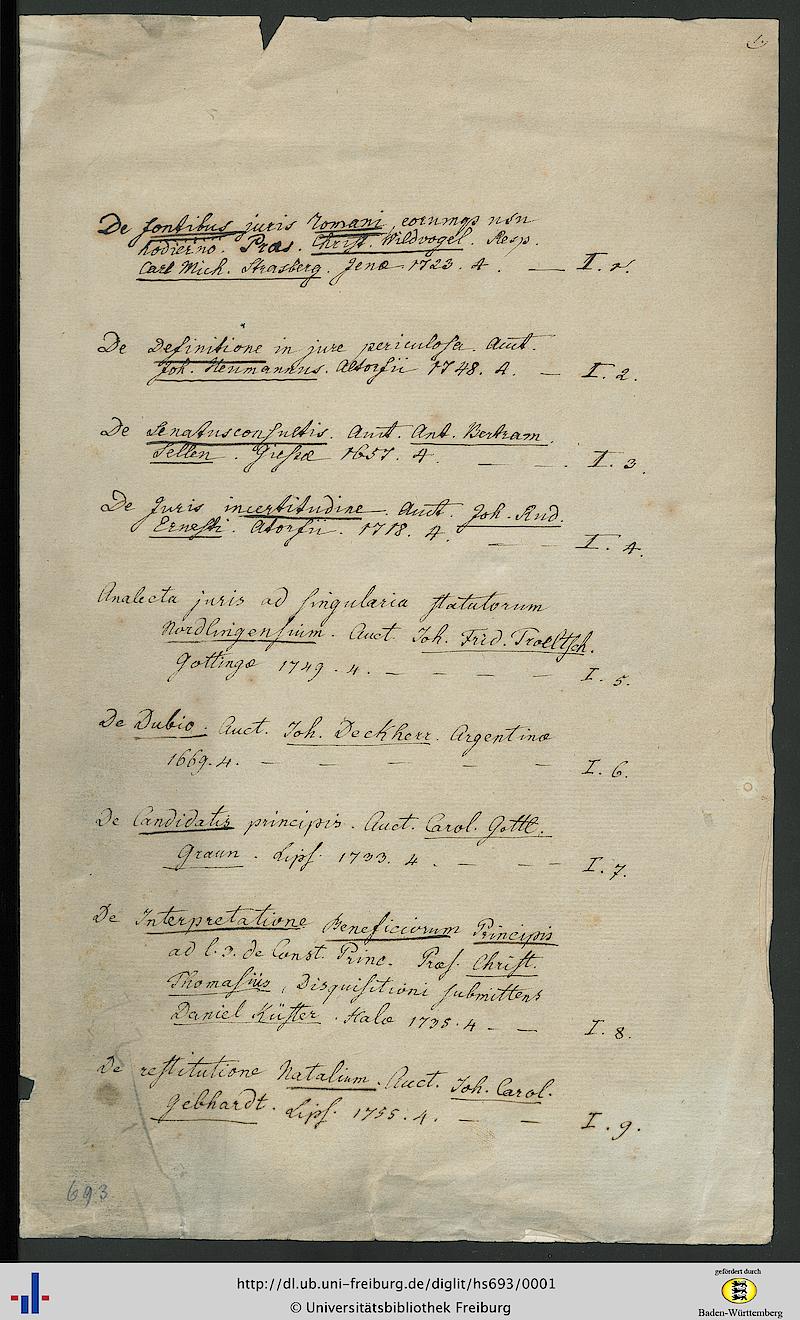 1.
De fontibus juris Romani, eorumqs usu
hodierno. Praes. Christ. Wildvogel. Resp.
Carl Mich. Strasberg. Jenæ 1723. 4. — I. 1.
De Definitione in jure periculosa. Auct.
Joh. Heumannus. Altorfii 1748. 4. — I. 2.
De Senatusconsultis. Auct. Ant. Bertram
Sellen. Giessæ 1657. 4. — — . I. 3.
De Juris incertitudine. Auct. Joh. Rud.
Ernesti. Atorfii. 1718. 4. — I. 4.
Analecta juris ad singularia statutorum
Nordlingensium. Auct. Joh. Frid. Troeltsch.
Gottingæ 1749. 4. — — — — — I. 5.
De Dubio. Auct. Joh. Deckherr. Argentinæ
1669. 4. — — — — — I. 6.
De Candidatis principis. Auct. Carol. Gottl.
Graun. Lips. 1733. 4. — — — I. 7.
De Interpretatione Beneficiorum Principis
ad l. 3. de Const. Princ. Præs. Christ.
Thomasius, Disquisitioni submittens
Daniel Küster. Halæ 1735. 4 — — I. 8.
De restitutione Natalium. Auct. Joh. Carol.
Gebhardt. Lips. 1755. 4. — — I. 9.
693
http://dl.ub.uni-freiburg.de/diglit/hs693/0001
© Universitätsbibliothek Freiburg
gefördert durch
Baden-Württemberg